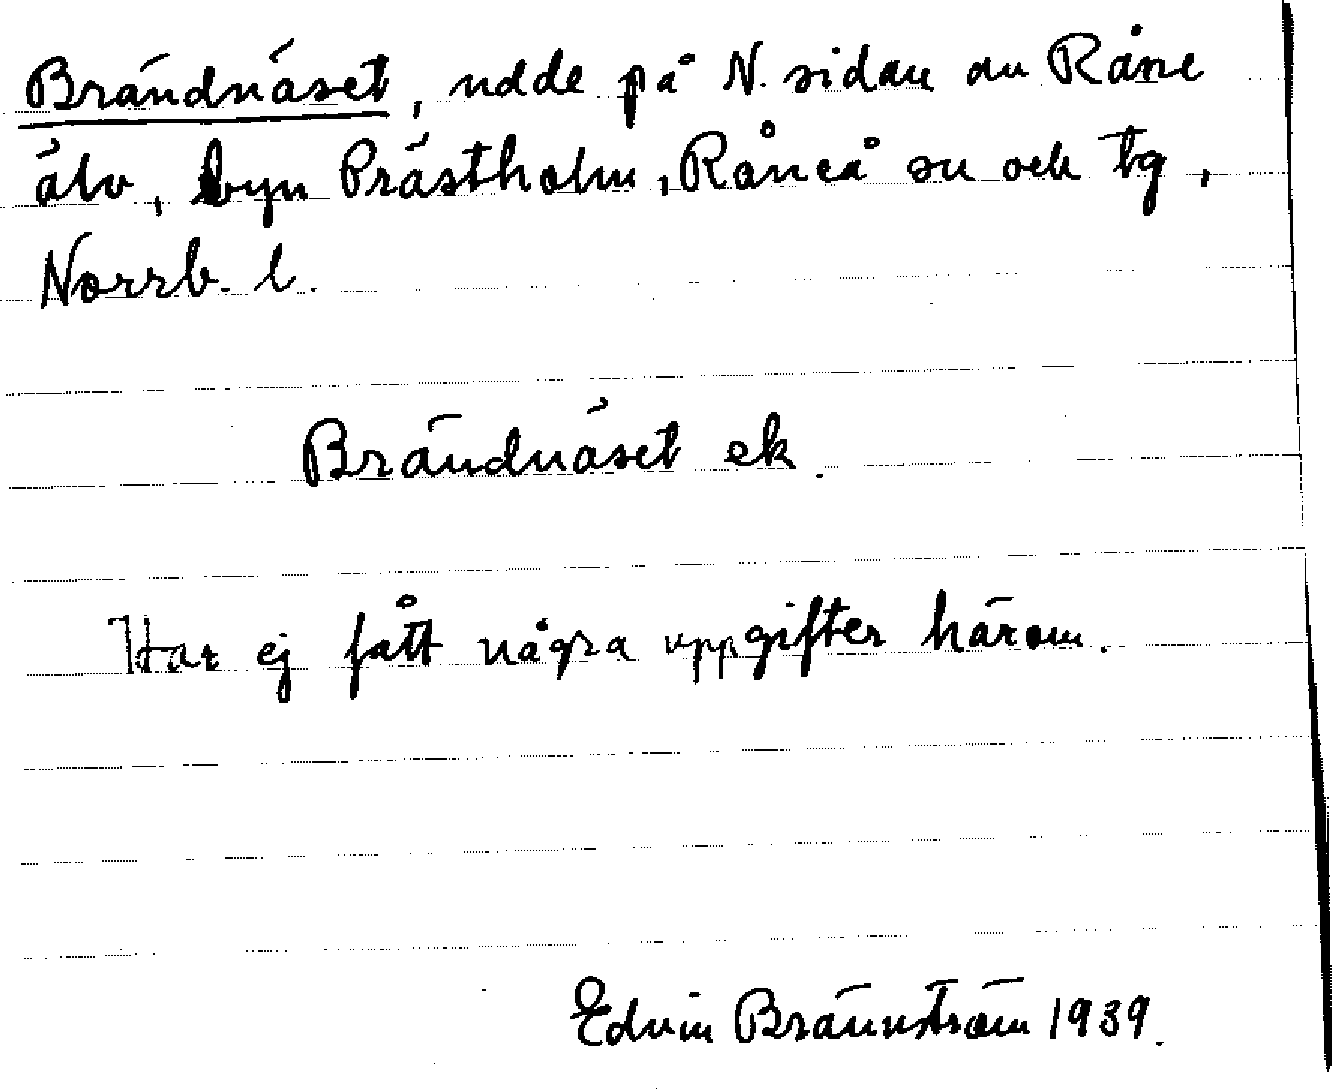 Brändnäset, udde på N. sidan av Råne
älv, byn Prästholm, Råneå sn och tg,
Norrb. l.
Brändnäset ek.
Har ej fått några uppgifter härom.
Edvin Brännström 1939.